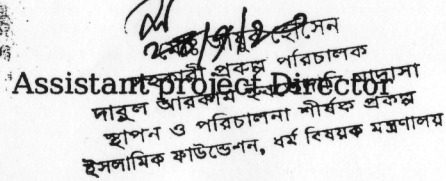 হোসেন
সহকারী প্রকল্প পরিচালক
Assistant project Director
দারুল আরকাম ইবতেদায়ি মাদ্রাসা
স্থাপন ও পরিচালনা শীর্ষক প্রকল্প
ইসলামিক ফাউন্ডেশন, ধর্ম বিষয়ক মন্ত্রণালয়